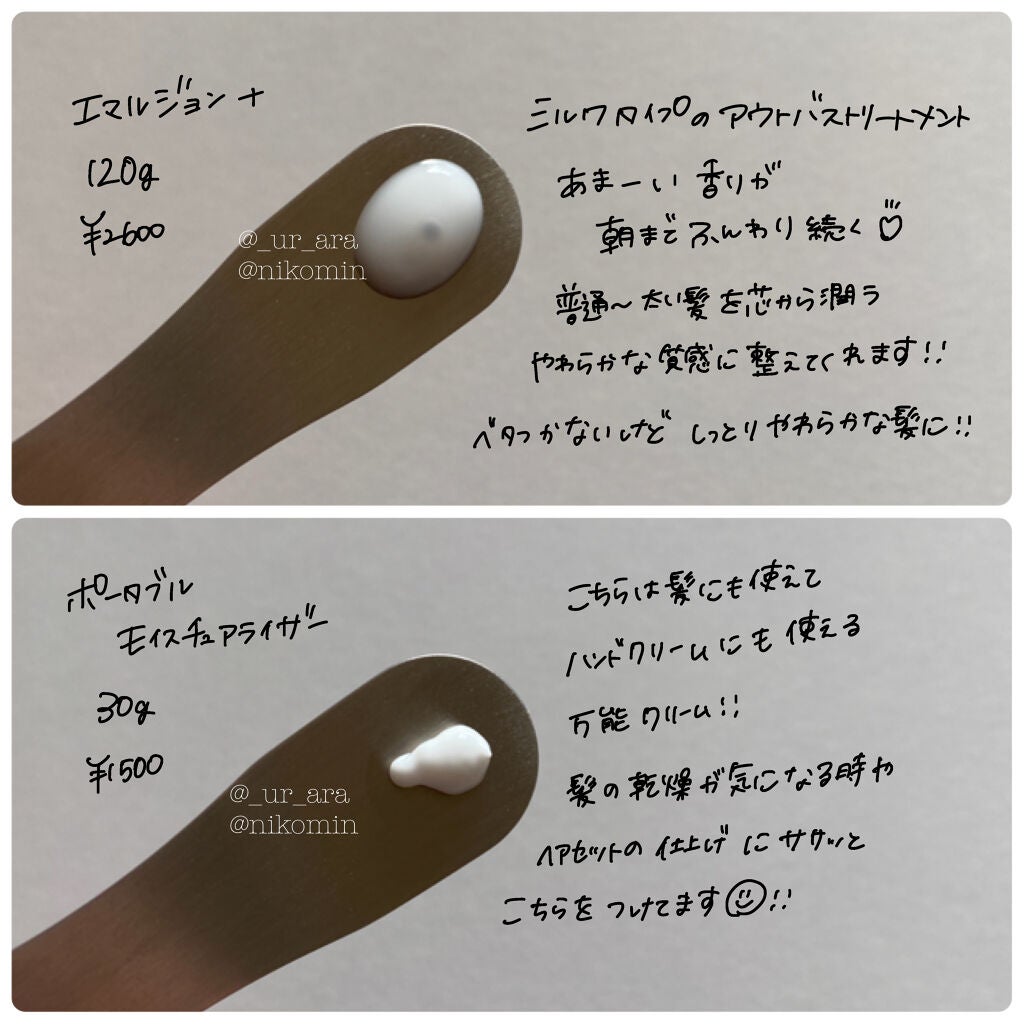 エマルジョン+
120g
¥2600
@_ur_ara
@nikomin
ミルクタイプのアウトバストリートメント
あまーい香りが
朝までふんわり続く♡
普通〜太い髪を芯から潤う
やわらかな質感に整えてくれます!!
ベタつかないけどしっとりやわらかな髪に!!
ポータブル
モイスチュアライザー
30g
¥1500
@_ur_ara
@nikomin
こちらは髪にも使えて
ハンドクリームにも使える
万能クリーム!!
髪の乾燥が気になる時や
ヘアセットの仕上げにササッと
こちらをつけてます☺!!